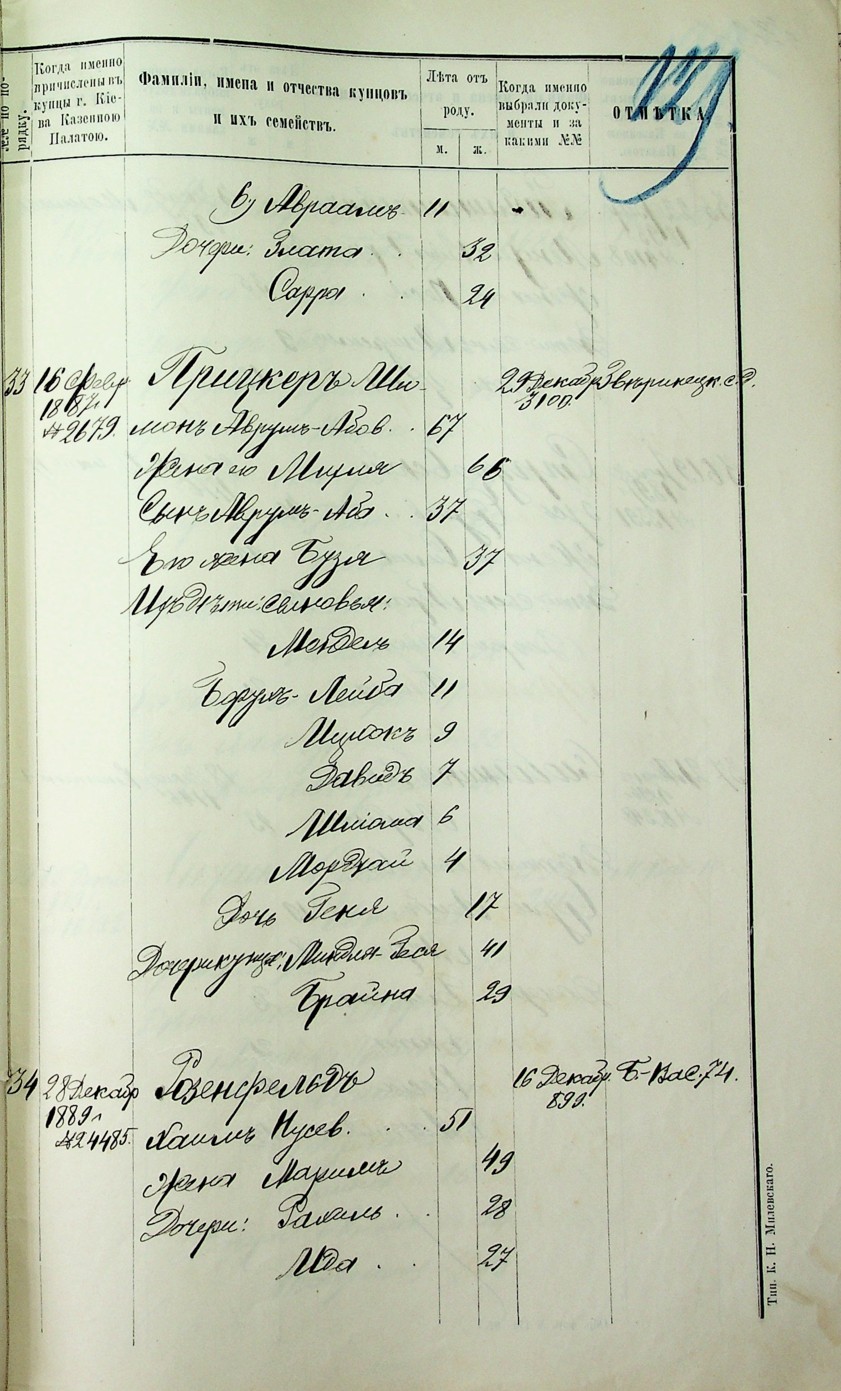 129
№№ по порядку.
Когда именно
причислены въ
купцы г. Кіе-
ва Казенною
Палатою.
Фамиліи, имена и отчества купцовъ
и ихъ семействъ.
Лѣта отъ
роду.
м.
ж.
Когда именно
выбрали доку-
менты и за
какими №№
ОТМѢТКА.
6) Авраамъ 11
Дочери: Злата . . 32
Сарра . . 24
33 16 Февр. Прицкеръ Ши- 29 Декабр. Звѣринецк.
1887 г. 3100.
№2679. монъ Аврумъ-Абов. . 67
Жена его Мирля 66
Сынъ Аврумъ-Аба . . 37
Его жена Бузя 37
Ихъ дѣти: сыновья:
Мендель 14
Ефуль-Лейба 11
Ицхокъ 9
Давидъ 7
Шліома 6
Мордхай 4
Дочь Геня 17
Дочери купца: Миндля-Зеся 41
Брайна 29
34 28 Декабр. Розенфельдъ 16 Декабр. Б.-Вас. 74.
1889 г. 899.
№24485. Хаимъ Нусев. . . 51
Жена Маримъ 49
Дочери: Рахиль . . 28
Ида . . 27
Тип. К. Н. Милевскаго.